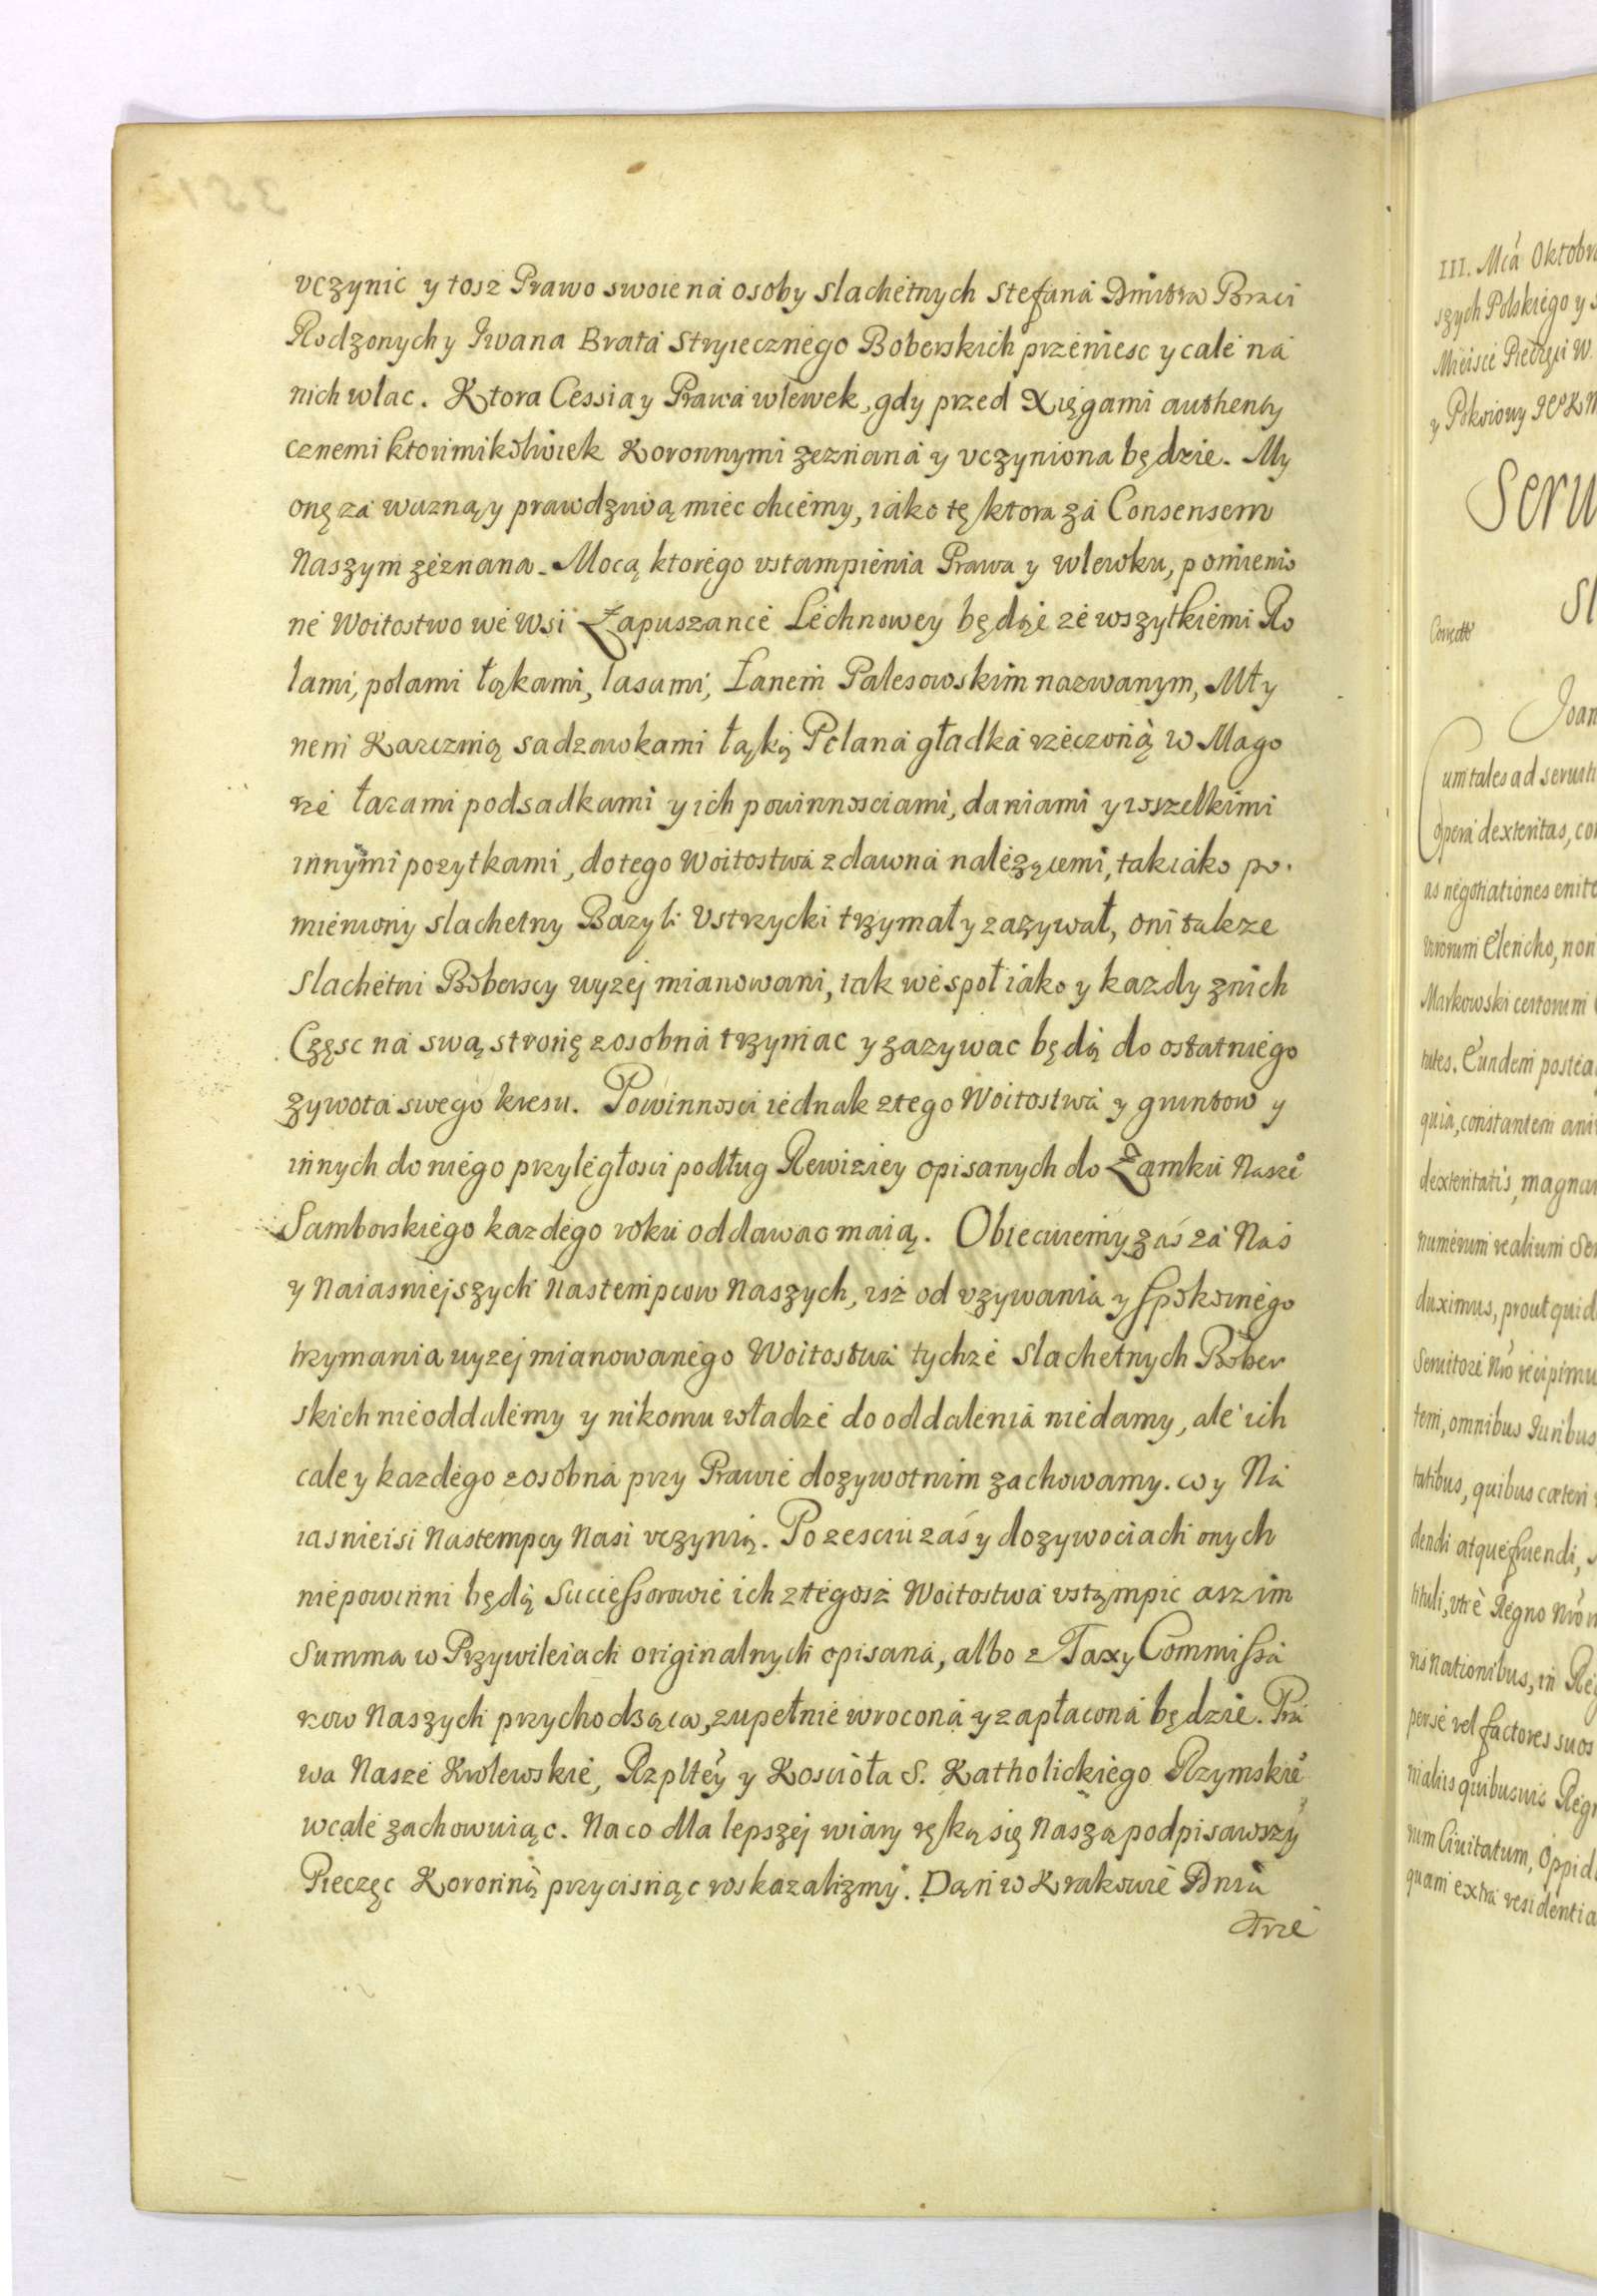 vczynic y tosz Prawo swoie ná osoby slachetnych Stefaná Dmitra Braci
Rodzonych y Iwana Bratá Stryiecznego Boberskich przeniesc y cale ná
nich wlac. Ktora Cessia y Prawá wlewek, gdy przed Xięgami authenty
cznemi ktorimikolwiek Koronnymi zeznaná y vczyniona będzie. My
onę zá wazną y prawdziwą miec chcemy, iáko tę ktora zá Consensem
Naszym zeznana. Mocą ktorego vstąmpienia Prawa y wlewku, pomienio
ne Woitostwo we wsi Łapuszance Lechnowey będzie ze wszytkiemi Ro
lami, polami łąkami, lasami, Łanem Palesowskim nazwanym, Mły
nem Karczmią sadzawkami łąką Polaná gładká rzeczoną w Mago
rze łazami podsadkami y ich powinnosciami, daniami y wszelkimi
innymi pozytkami, do tego Woitostwá zdawná nalezącemi, tak iáko po
mieniony slachetny Bazyli Vstrzycki trzymał y zazywał, oni także
slachetni Boberscy wyzej mianowani, tak wespoł iáko y kazdy z nich
Częsc ná swą stronę zosobná trzymac y zazywac będą do ostatniego
zywotá swego kresu. Powinnosci iednak z tego Woitostwá y gruntow y
innych do niego przyległosci podług Rewiziey opisanych do Zamku Nasze
Samborskiego kazdego roku oddawac maią. Obiecuiemy zaś zá Nas
y Naiasniejszych Nastempcow Naszych, isz od vzywania y spokoinego
trzymania wyzej mianowanego Woitostwá tychze slachetnych Bober
skich nie oddalemy y nikomu władze do oddalenia nie damy, ale ich
cale y kazdego zosobná przy Prawie dozywotnim zachowamy. co y Ná
iasnieisi Nastempcy Nasi vczynią. Po zesciu zaś y dozywociach onych
niepowinni będą Successorowie ich z tegosz Woitostwá vstąmpic asz im
Summa w Przywileiach originalnych opisaná, albo z Taxy Commissá
rzow Naszych przychodząca, zupełnie wroconá y zapłaconá będzie. Prá
wa Nasze Krolewskie, Rzpltey y Kosciołá S. Katholickiego Rzymskie
wcale zachowuiąc. Na co dla lepszej wiary ręką się Naszą podpisawszy
Pieczęc Koronną przycisnąc roskazalismy. Dan w Krakowie Dniá
Trze
III. Mcá Oktobr
szych Polskiego y
Mieisce Pieczęci W.
Seru
Sl
Joan
um tales ad seruit
opera dexteritas, co
as negotiationes enit
uorum Clericho, non
Markowski certorum
tutes. Eundem postea
quia, constantem ani
dexteritatis, magna
numerum realium Se
duximus, prout quid
Seruitore Nro recipimu
tem, omnibus Iuribus
tatibus, quibus cæteri
dendi atque fruendi,
tituli, vti è Regno Nro
nis nationibus, in Re
per se vel factores suos
m alijs quibusuis Reg
rum Ciuitatum, Oppid
quam extra residentia